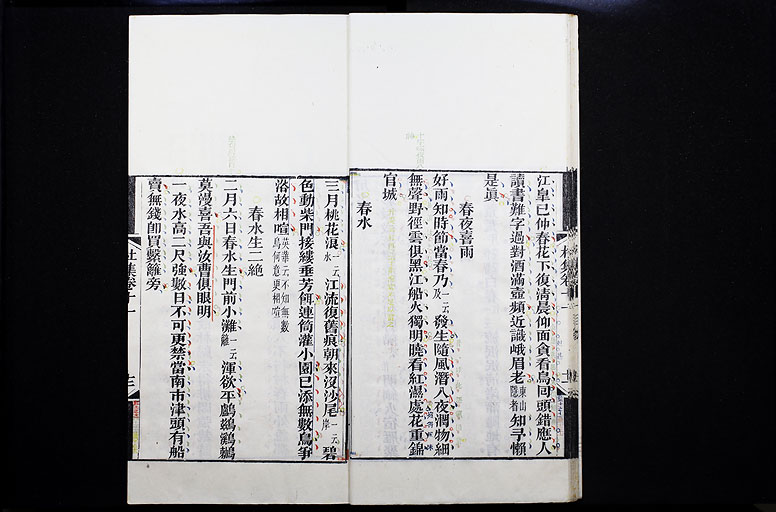 江皐已仲春花下復淸晨仰面貪看鳥回頭錯應人
讀書難字過對酒滿壺頻近識峨眉老東山隱者知予懶
是眞
春夜喜雨
好雨知時節當春乃一云及發生隨風潛入夜潤物細
無聲野徑雲俱黑江船火獨明曉看紅濕處花重錦
官城
春水
三月桃花浪一云水江流復舊痕朝來沒沙尾一云岸碧
色動柴門接縷垂芳餌連筒灌小園已添無數鳥爭
浴故相喧英華云不知無數鳥何意更相喧
春水生二絶
二月六日春水生門前小灘一云籬渾欲平鸕鷀鸂鶒
莫漫喜吾與汝曹俱眼明
一夜水高二尺強數日不可更禁當南市津頭有船
賣無錢卽買繫籬旁
杜集卷十一